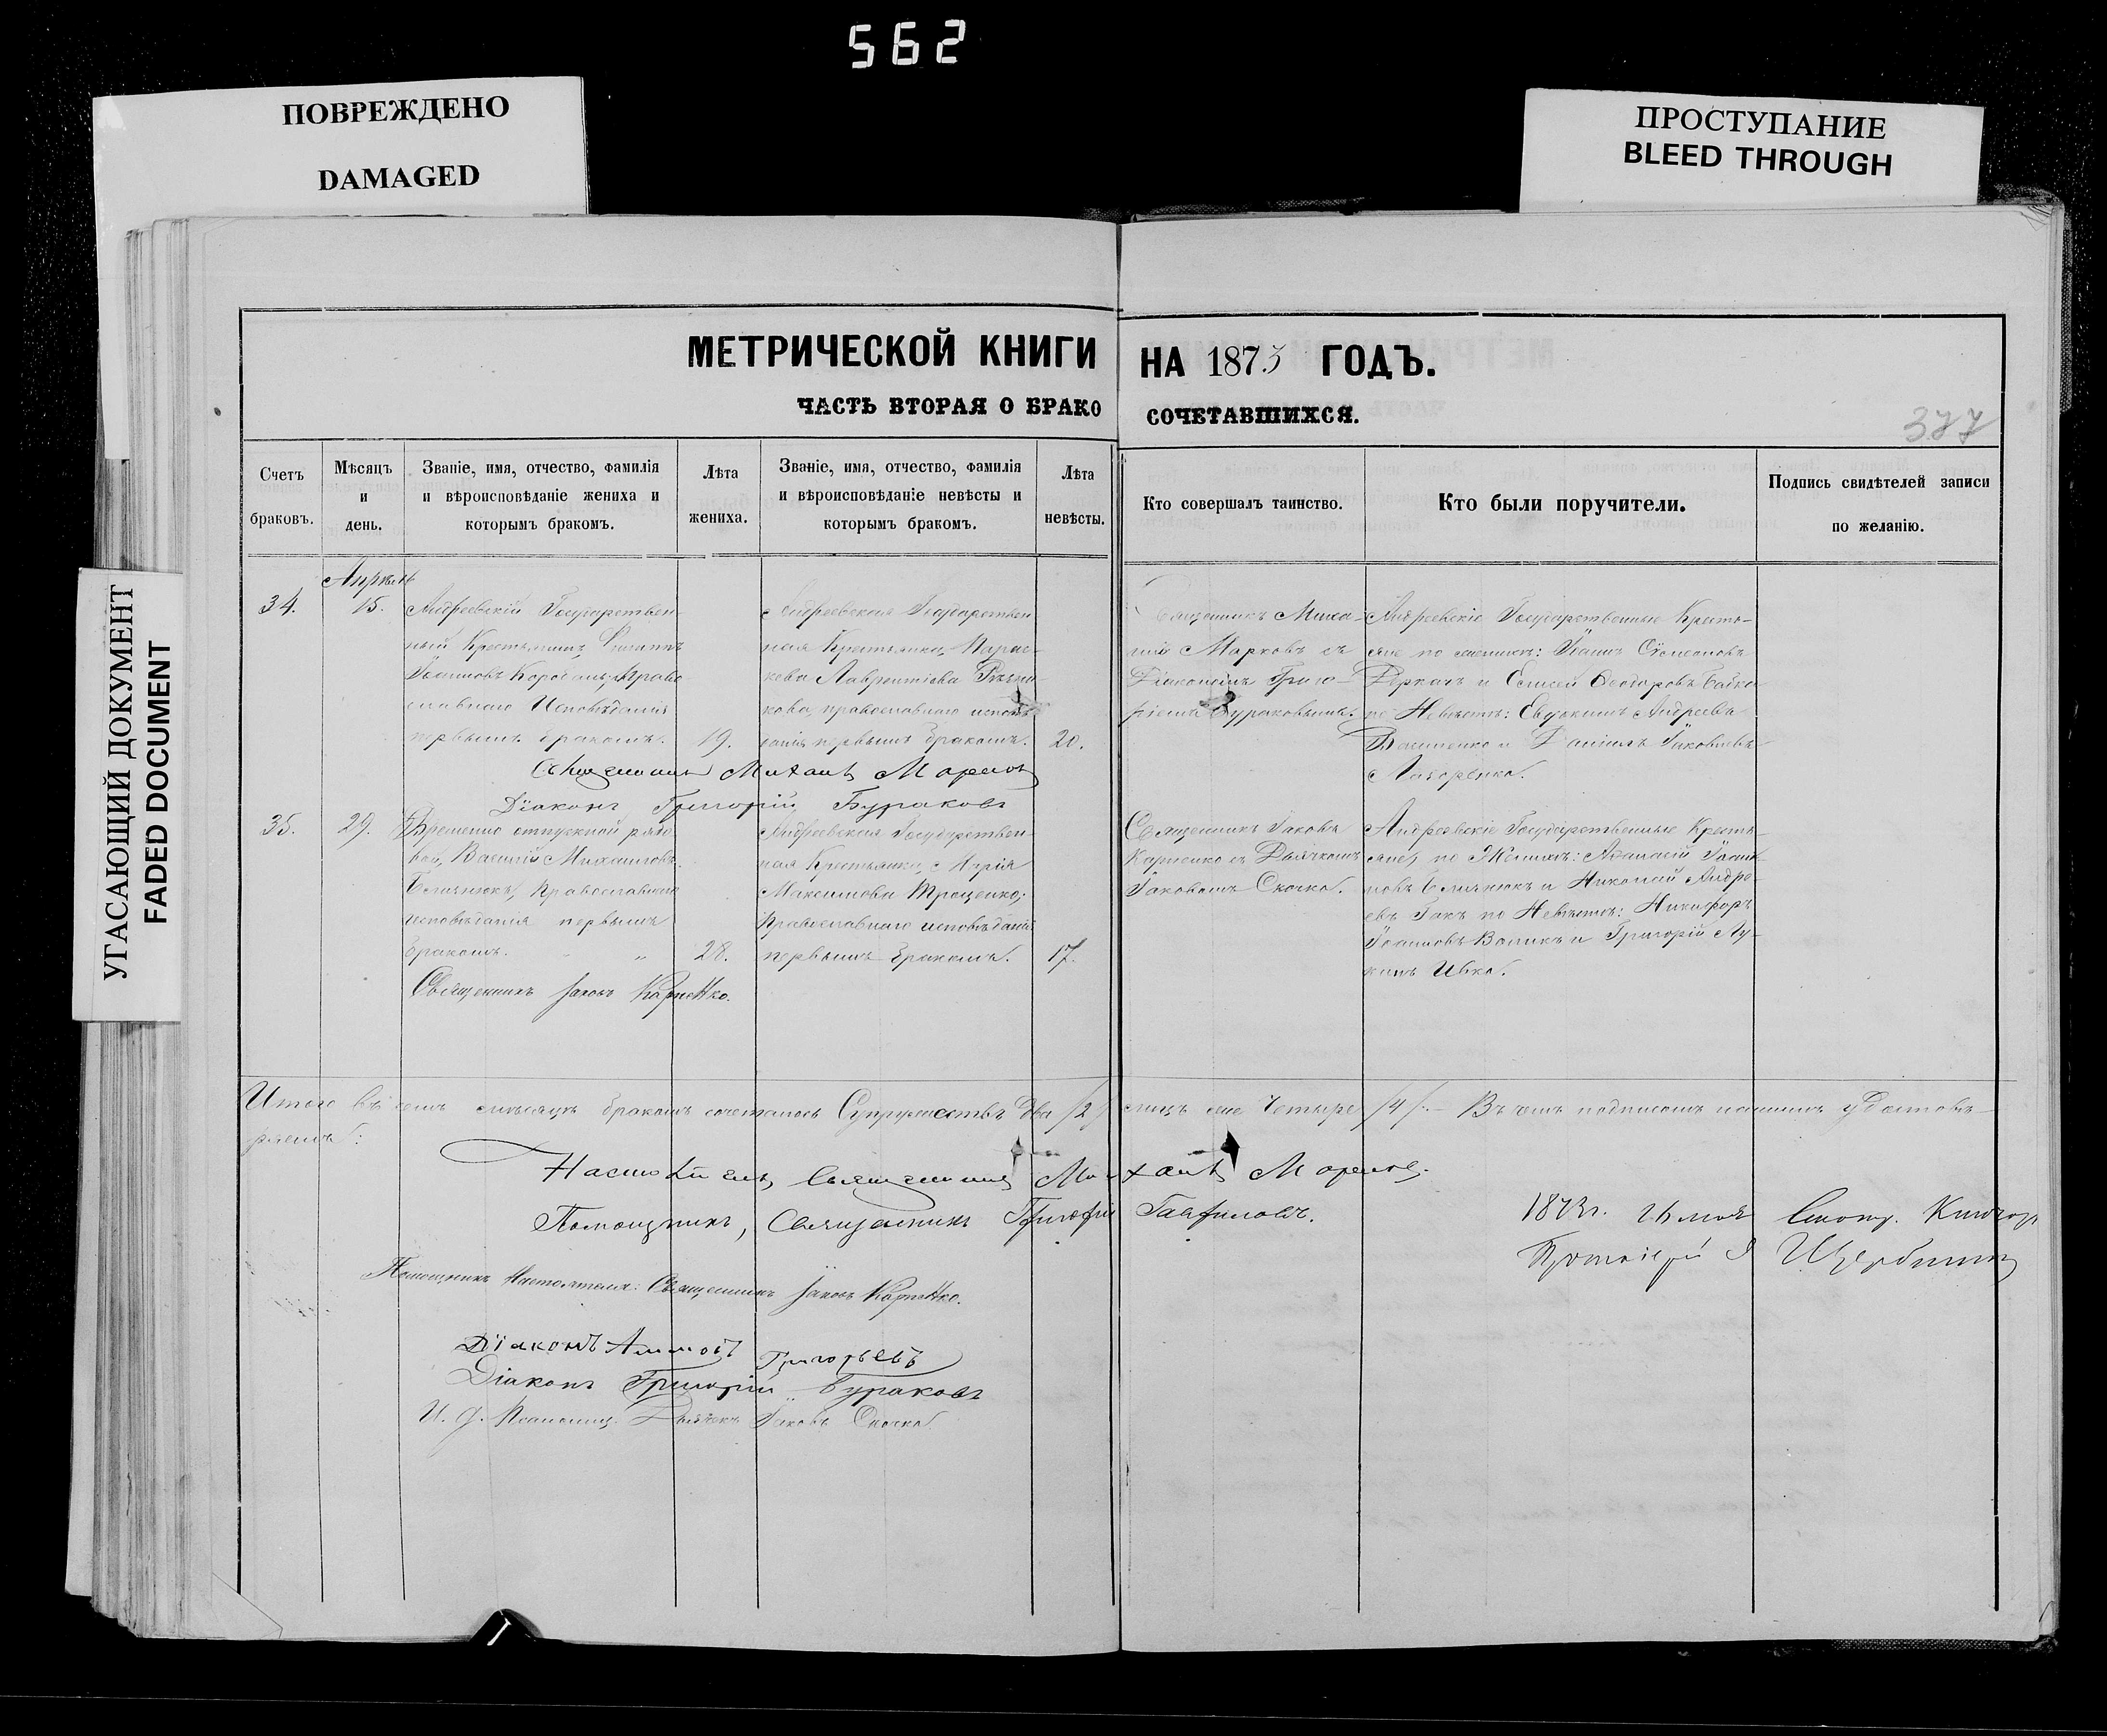 562
ПОВРЕЖДЕНО
DAMAGED
ПРОСТУПАНИЕ
BLEED THROUGH
УГАСАЮЩИЙ ДОКУМЕНТ
FADED DOCUMENT
МЕТРИЧЕСКОЙ КНИГИ НА 1873 ГОДЪ.
ЧАСТЬ ВТОРАЯ О БРАКОСОЧЕТАВШИХСЯ.
377
Счетъ
браковъ.
Мѣсяцъ
и
день.
Званіе, имя, отчество, фамилія
и вѣроисповѣданіе жениха и
которымъ бракомъ.
Лѣта
жениха.
Званіе, имя, отчество, фамилія
и вѣроисповѣданіе невѣсты и
которымъ бракомъ.
Лѣта
невѣсты.
Кто совершалъ таинство.
Кто были поручители.
Подпись свидѣтелей записи
по желанію.
Апрѣль
34.
15.
Андреевскій Государствен-
ный Крестьянинъ, Филиппъ
Іоанновъ Православнаго Исповѣданія
первымъ бракомъ.
19.
Андреевская Государствен
ная Крестьянка, Парас-
кева Лаврентіева
православнаго исповѣ
данія первымъ бракомъ.
20.
Священникъ Миха-
илъ Марковъ съ
Діакономъ Григо-
ріемъ Бураковымъ.
Андреевскіе Государственные Кресть-
яне по женихѣ: Іоаннъ Сѵмеоновъ
Деркачъ и Елисей Ѳеодоровъ
по Невѣстѣ: Евдокимъ Андреевъ
Василенко и Даніилъ Іаковлевъ
Лазоренко.
Священникъ Михаилъ Марковъ
Діаконъ Григорій Бураковъ
35.
29.
Временно отпускной рядо
вой, Василій Михаиловъ
Православнаго
исповѣданія первымъ
бракомъ. „
28.
Андреевская Государствен-
ная Крестьянка, Марія
Максимова Троценко,
Православнаго исповѣданія
первымъ бракомъ.
17.
Священникъ Іаковъ
Карпенко съ Дьячкомъ
Іаковомъ Скочко.
Андреевскіе Государственные Кресть-
яне, по Женихѣ: Аѳанасій Іоан-
новъ и Николай Андре-
евъ Гакъ по Невѣстѣ: Никифоръ
Іоанновъ Воликъ и Григорій Лу-
кинъ Ивко.
Священникъ Іаковъ Карпенко.
Итого въ семъ мѣсяцѣ бракомъ сочеталось Супружествъ два /2/ лицъ Четыре /4/. — Въ чемъ подписомъ нашимъ удостовѣ-
ряемъ:
Настоятель, Священникъ Михаилъ Марковъ.
Помощникъ, Священникъ Григорій Гавриловъ.
Помощникъ Настоятеля: Священникъ Іаковъ Карпенко.
Діаконъ Григорьевъ
Діаконъ Григорій Бураковъ
И. д. Псаломщ. Дьячекъ Іаковъ Скочко
1873г. 26 мая
Протоіерей